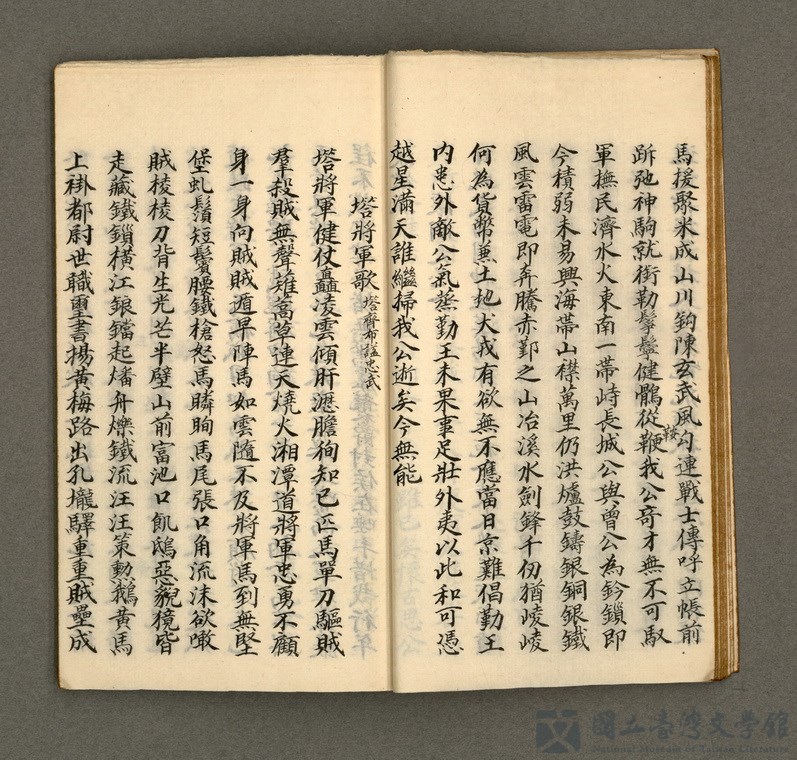 馬援聚米成山川鈎陳玄武風勻連戰士傳呼立帳前
跅弛神駒就銜勒拳鬈健鶻從鞭我公奇才無不可馭
鞍
軍撫民濟水火東南一帶峙長城公與曾公為鈐鎖即
今積弱未易興海帶山襟萬里仍洪爐鼓鑄銀銅銀鐵
風雲雷電即奔騰赤鄞之山冶溪水劍鋒千仞猶崚崚
何為貨幣兼土地犬戎有欲無不應當日京難倡勤王
內患外敵公氣蒸勤王未果事足壯外夷以此和可憑
越星滿天誰繼掃我公逝矣今無能
塔將軍歌 塔齊布諡忠武
塔將軍健仗矗凌雲傾肝瀝膽徇知已匹馬單刀驅賊
羣殺賊無聲雉蒿草連天燒火湘潭道將軍忠勇不顧
身一身向賊賊遁早陣馬如雲隨不及將軍馬到無堅
堡虬鬚短鬢腰鐵槍怒馬瞵眴馬尾張口角流沫欲噉
賊棱棱刀背生光芒半壁山前富池口飢鴟惡貎獍皆
走藏鐵鎖橫江鋃鐺起燔舟爍鐵流汪汪策勳鵝黃馬
上褂都尉世職璽書揚黃梅路出孔壠驛重重賊壘成
國立臺灣文學館
National Museum of Taiwan Literature